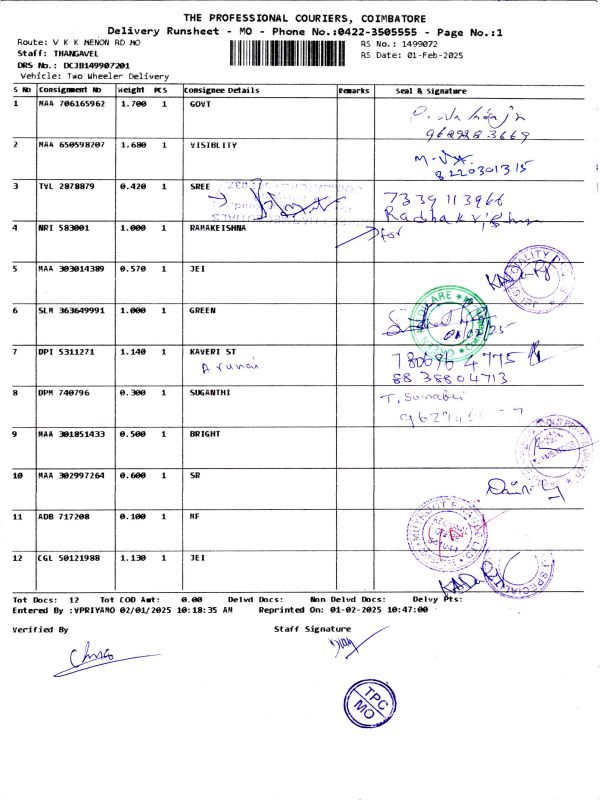 THE PROFESSIONAL COURIERS, COIMBATORE
Delivery Runsheet - MO - Phone No.:0422-3505555 - Page No.:1
Route: V K K MENON RD MO
RS No.: 1499072
Staff: THANGAVEL
RS Date: 01-Feb-2025
DRS No.: DCJB149907201
Vehicle: Two Wheeler Delivery
S No Consignment No Weight PCS Consignee Details Remarks Seal & Signature
1 MAA 706165962 1.700 1 GOVT
9629283669
2 MAA 650598207 1.680 1 VISIBLITY
8220301315
3 TVL 2878879 0.420 1 SREE
7339113966
Radhakrishnan
4 NRI 583001 1.000 1 RAMAKEISHNA
for
5 MAA 303014389 0.570 1 JEI
6 SLM 363649991 1.000 1 GREEN
7 DPI 5311271 1.140 1 KAVERI ST
Arunai
780696 4775
8838804713
8 DPM 740796 0.300 1 SUGANTHI
9 MAA 301851433 0.500 1 BRIGHT
10 MAA 302997264 0.600 1 SR
11 ADB 717208 0.100 1 MF
12 CGL 50121988 1.130 1 JEI
Tot Docs: 12 Tot COD Amt: 0.00 Delvd Docs: Non Delvd Docs: Delvy Pts:
Entered By :VPRIYAMO 02/01/2025 10:18:35 AM Reprinted On: 01-02-2025 10:47:00
Verified By
Staff Signature
TPC
MO